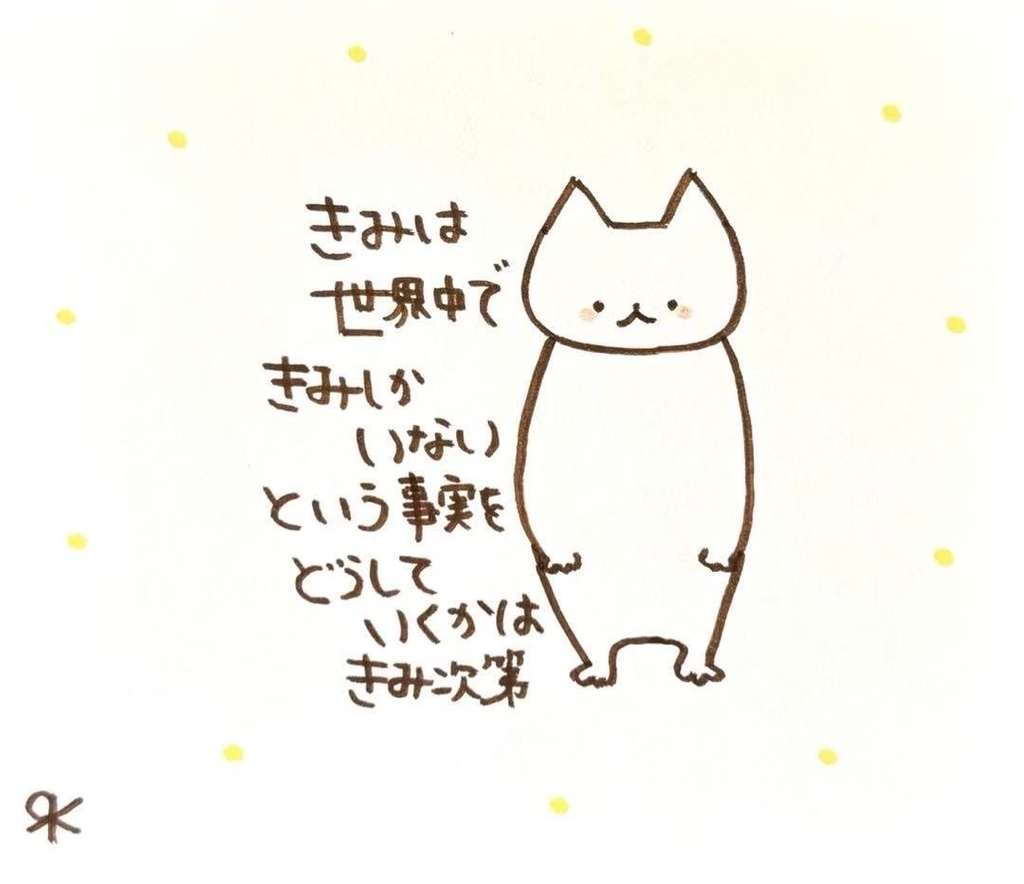 きみは
世界中で
きみしか
いない
という事実を
どうして
いくかは
きみ次第